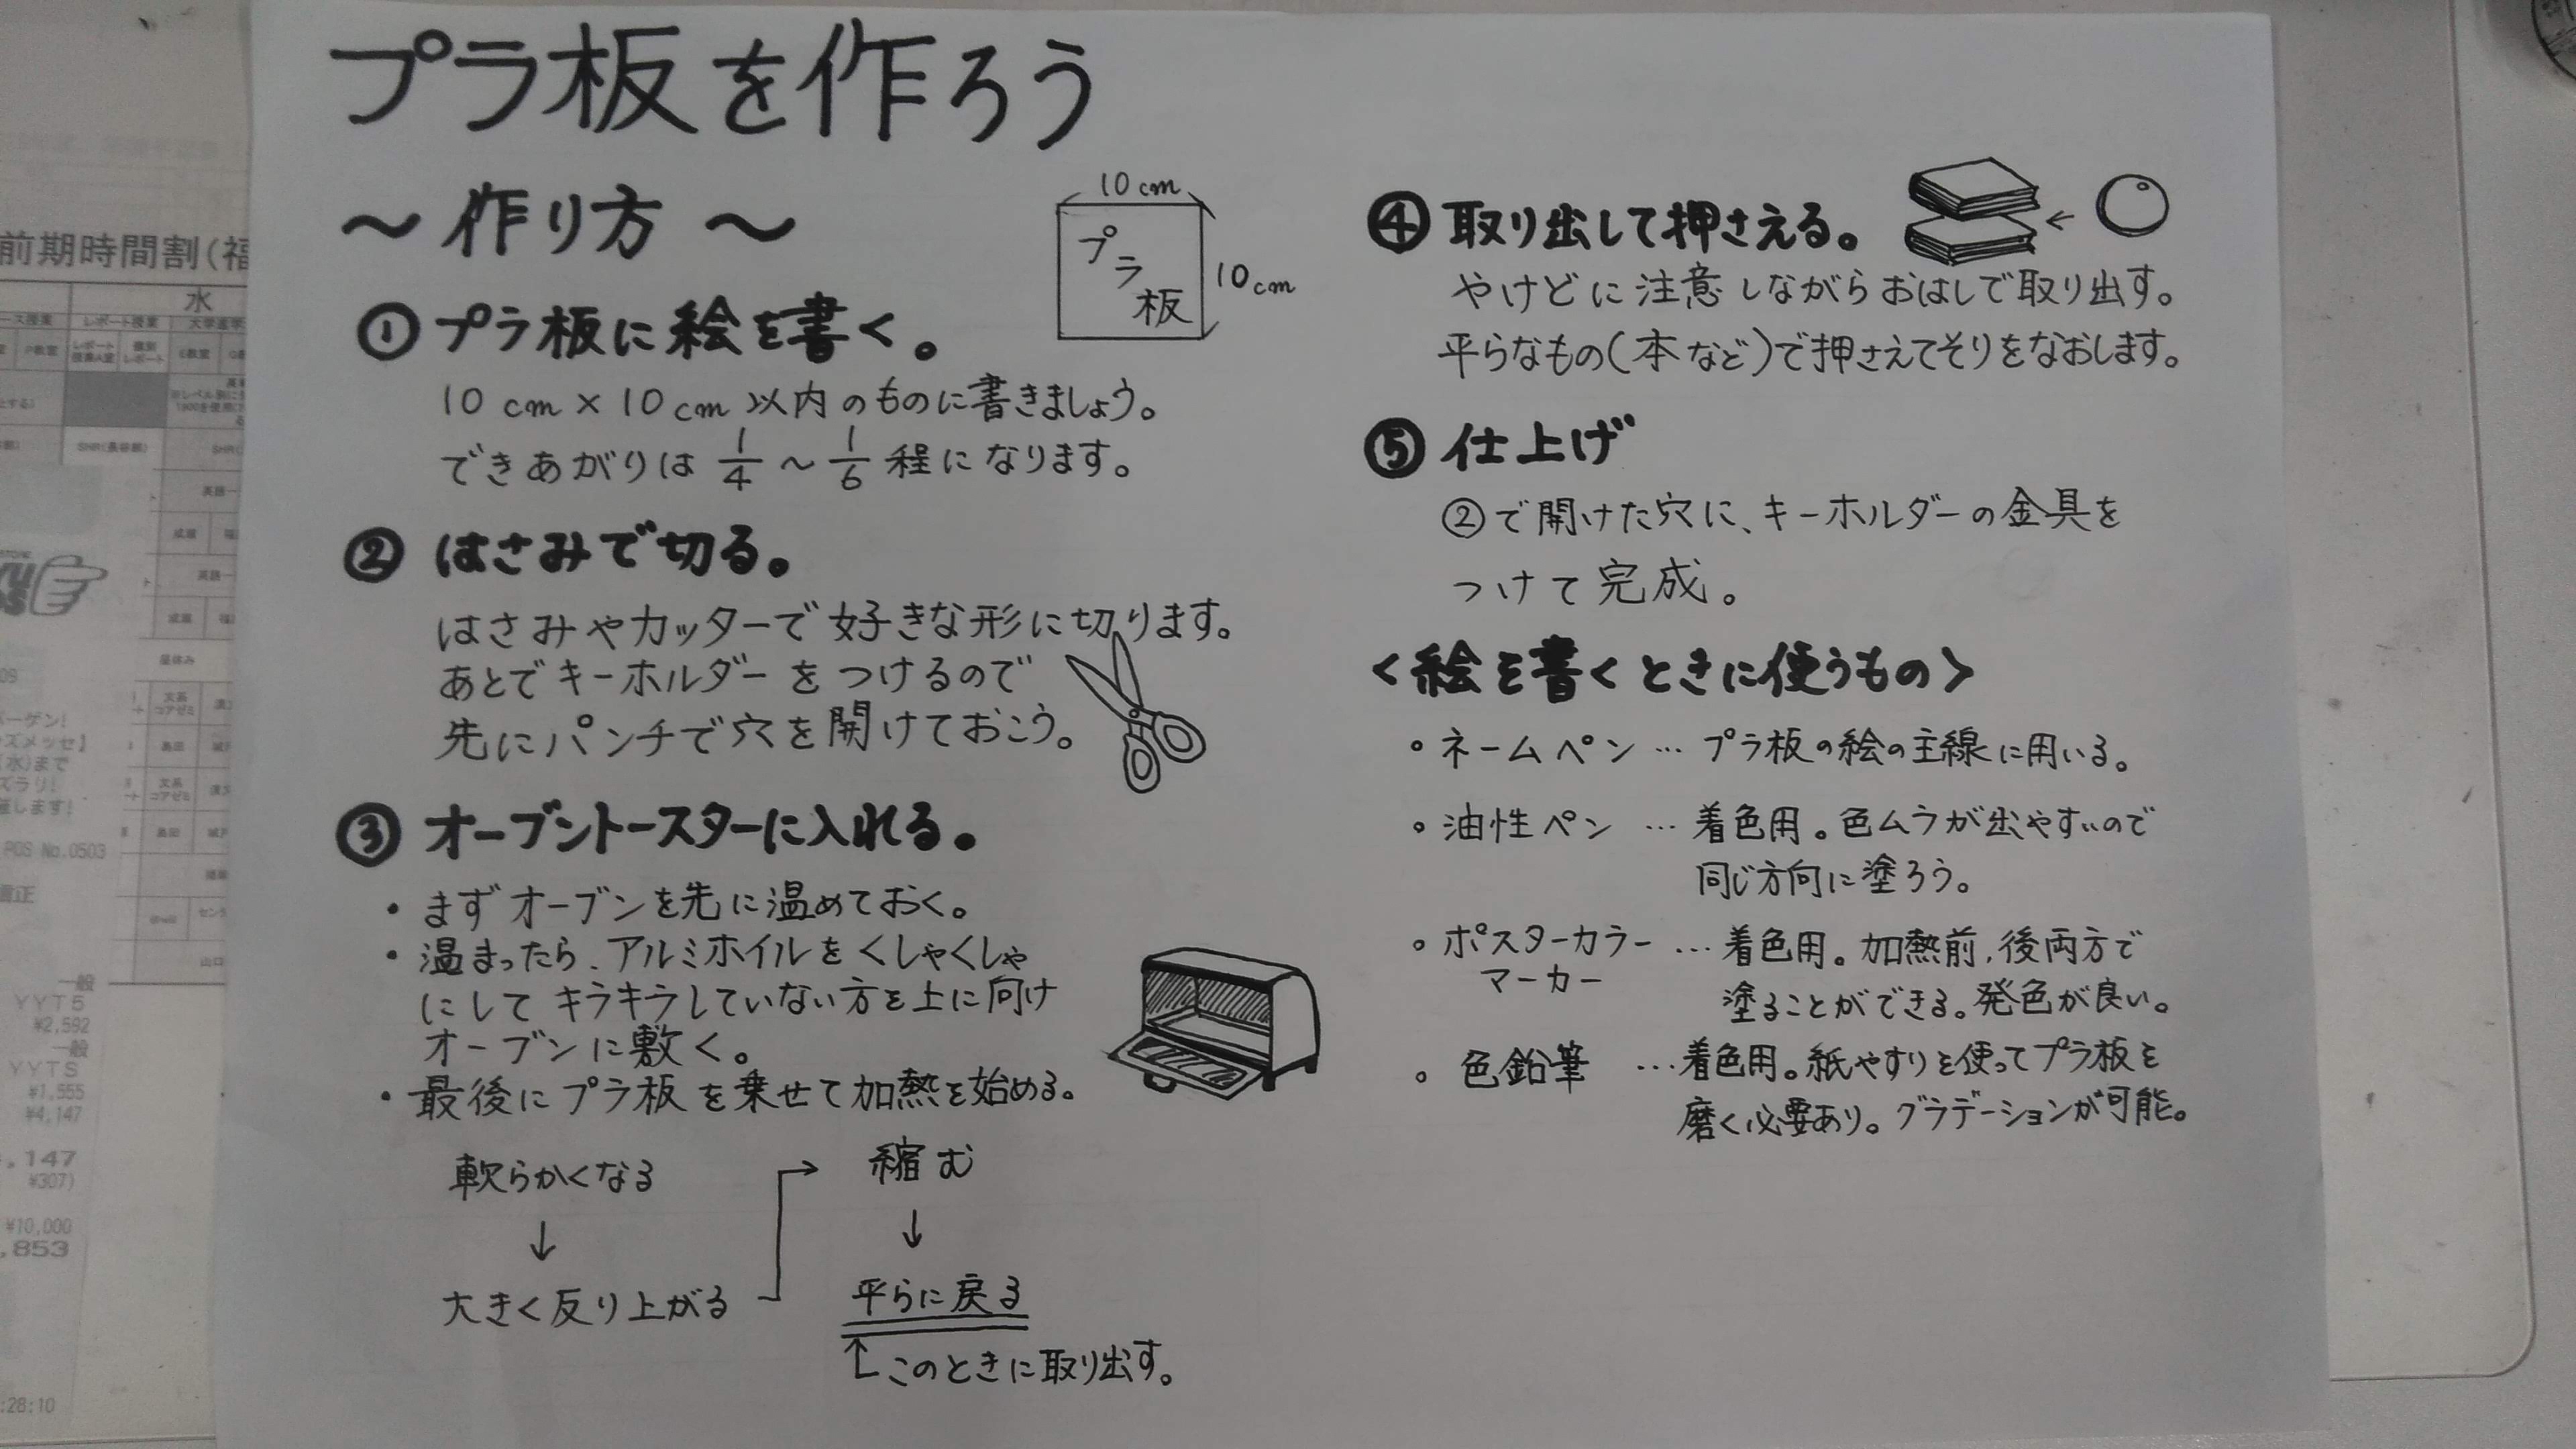 プラ板を作ろう
〜作り方〜
10cm
プラ板
10cm
①プラ板に絵を書く。
10cm×10cm以内のものに書きましょう。
できあがりは1/4〜1/6程になります。
②はさみで切る。
はさみやカッターで好きな形に切ります。
あとでキーホルダーをつけるので
先にパンチで穴を開けておこう。
③オーブントースターに入れる。
・まずオーブンを先に温めておく。
・温まったら、アルミホイルをくしゃくしゃ
にしてキラキラしていない方を上に向け
オーブンに敷く。
・最後にプラ板を乗せて加熱を始める。
軟らかくなる
↓
大きく反り上がる
→縮む
↓
平らに戻る
↑このときに取り出す。
④取り出して押さえる。
←
やけどに注意しながらおはしで取り出す。
平らなもの(本など)で押さえてそりをなおします。
⑤仕上げ
②で開けた穴に、キーホルダーの金具を
つけて完成。
<絵を書くときに使うもの>
・ネームペン…プラ板の絵の主線に用いる。
・油性ペン…着色用。色ムラが出やすいので
同じ方向に塗ろう。
・ポスターカラーマーカー…着色用。加熱前,後両方で
塗ることができる。発色が良い。
・色鉛筆…着色用。紙やすりを使ってプラ板を
磨く必要あり。グラデーションが可能。
前期時間割(福
水
レポート授業
大学進学
P教室
レポート
個別
レポート
E教室
SHR(長谷部)
昼休み
文系
コアゼミ
島田
文系
コアゼミ
島田
山口
バーゲン!
ズメッセ】
(水)まで
ズラリ!
催します!
POS No.0503
一般
YYT5
¥2,592
一般
YYTS
¥1,555
¥4,147
,147
¥307)
¥10,000
,853
:28:10